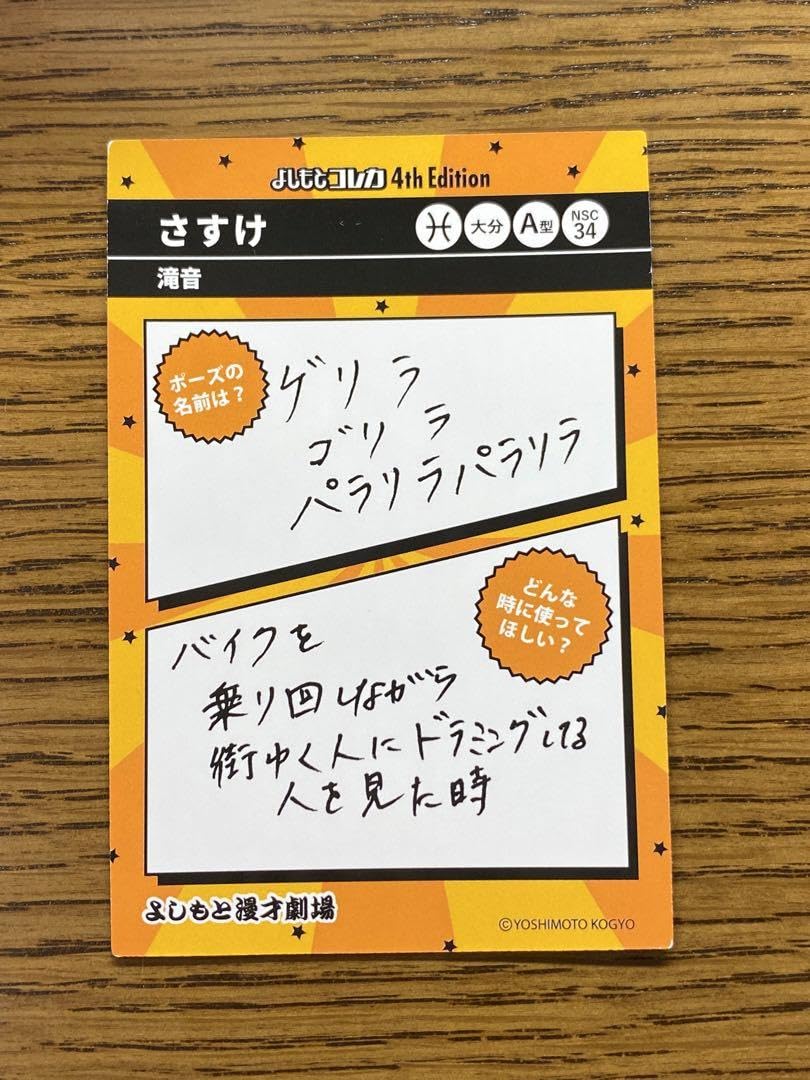 よしもとコレカ 4th Edition
さすけ
♓ 大分 A型 NSC 34
滝音
ポーズの
名前は？
ゲリラ
ゴリラ
パラリラパラリラ
どんな
時に使って
ほしい？
バイクを
乗り回しながら
街ゆく人にドラミングしてる
人を見た時
よしもと漫才劇場
©YOSHIMOTO KOGYO